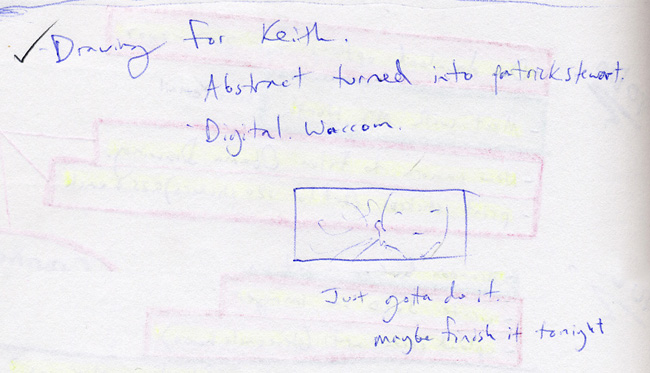 Drawing for Keith.
Abstract turned into patrickstewart.
Digital. Waccom.
Just gotta do it.
maybe finish it tonight